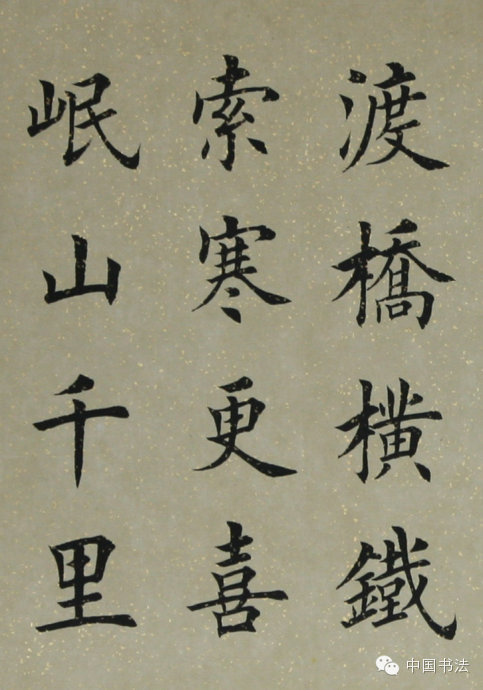 渡橋横鐵
索寒更喜
岷山千里
中国书法